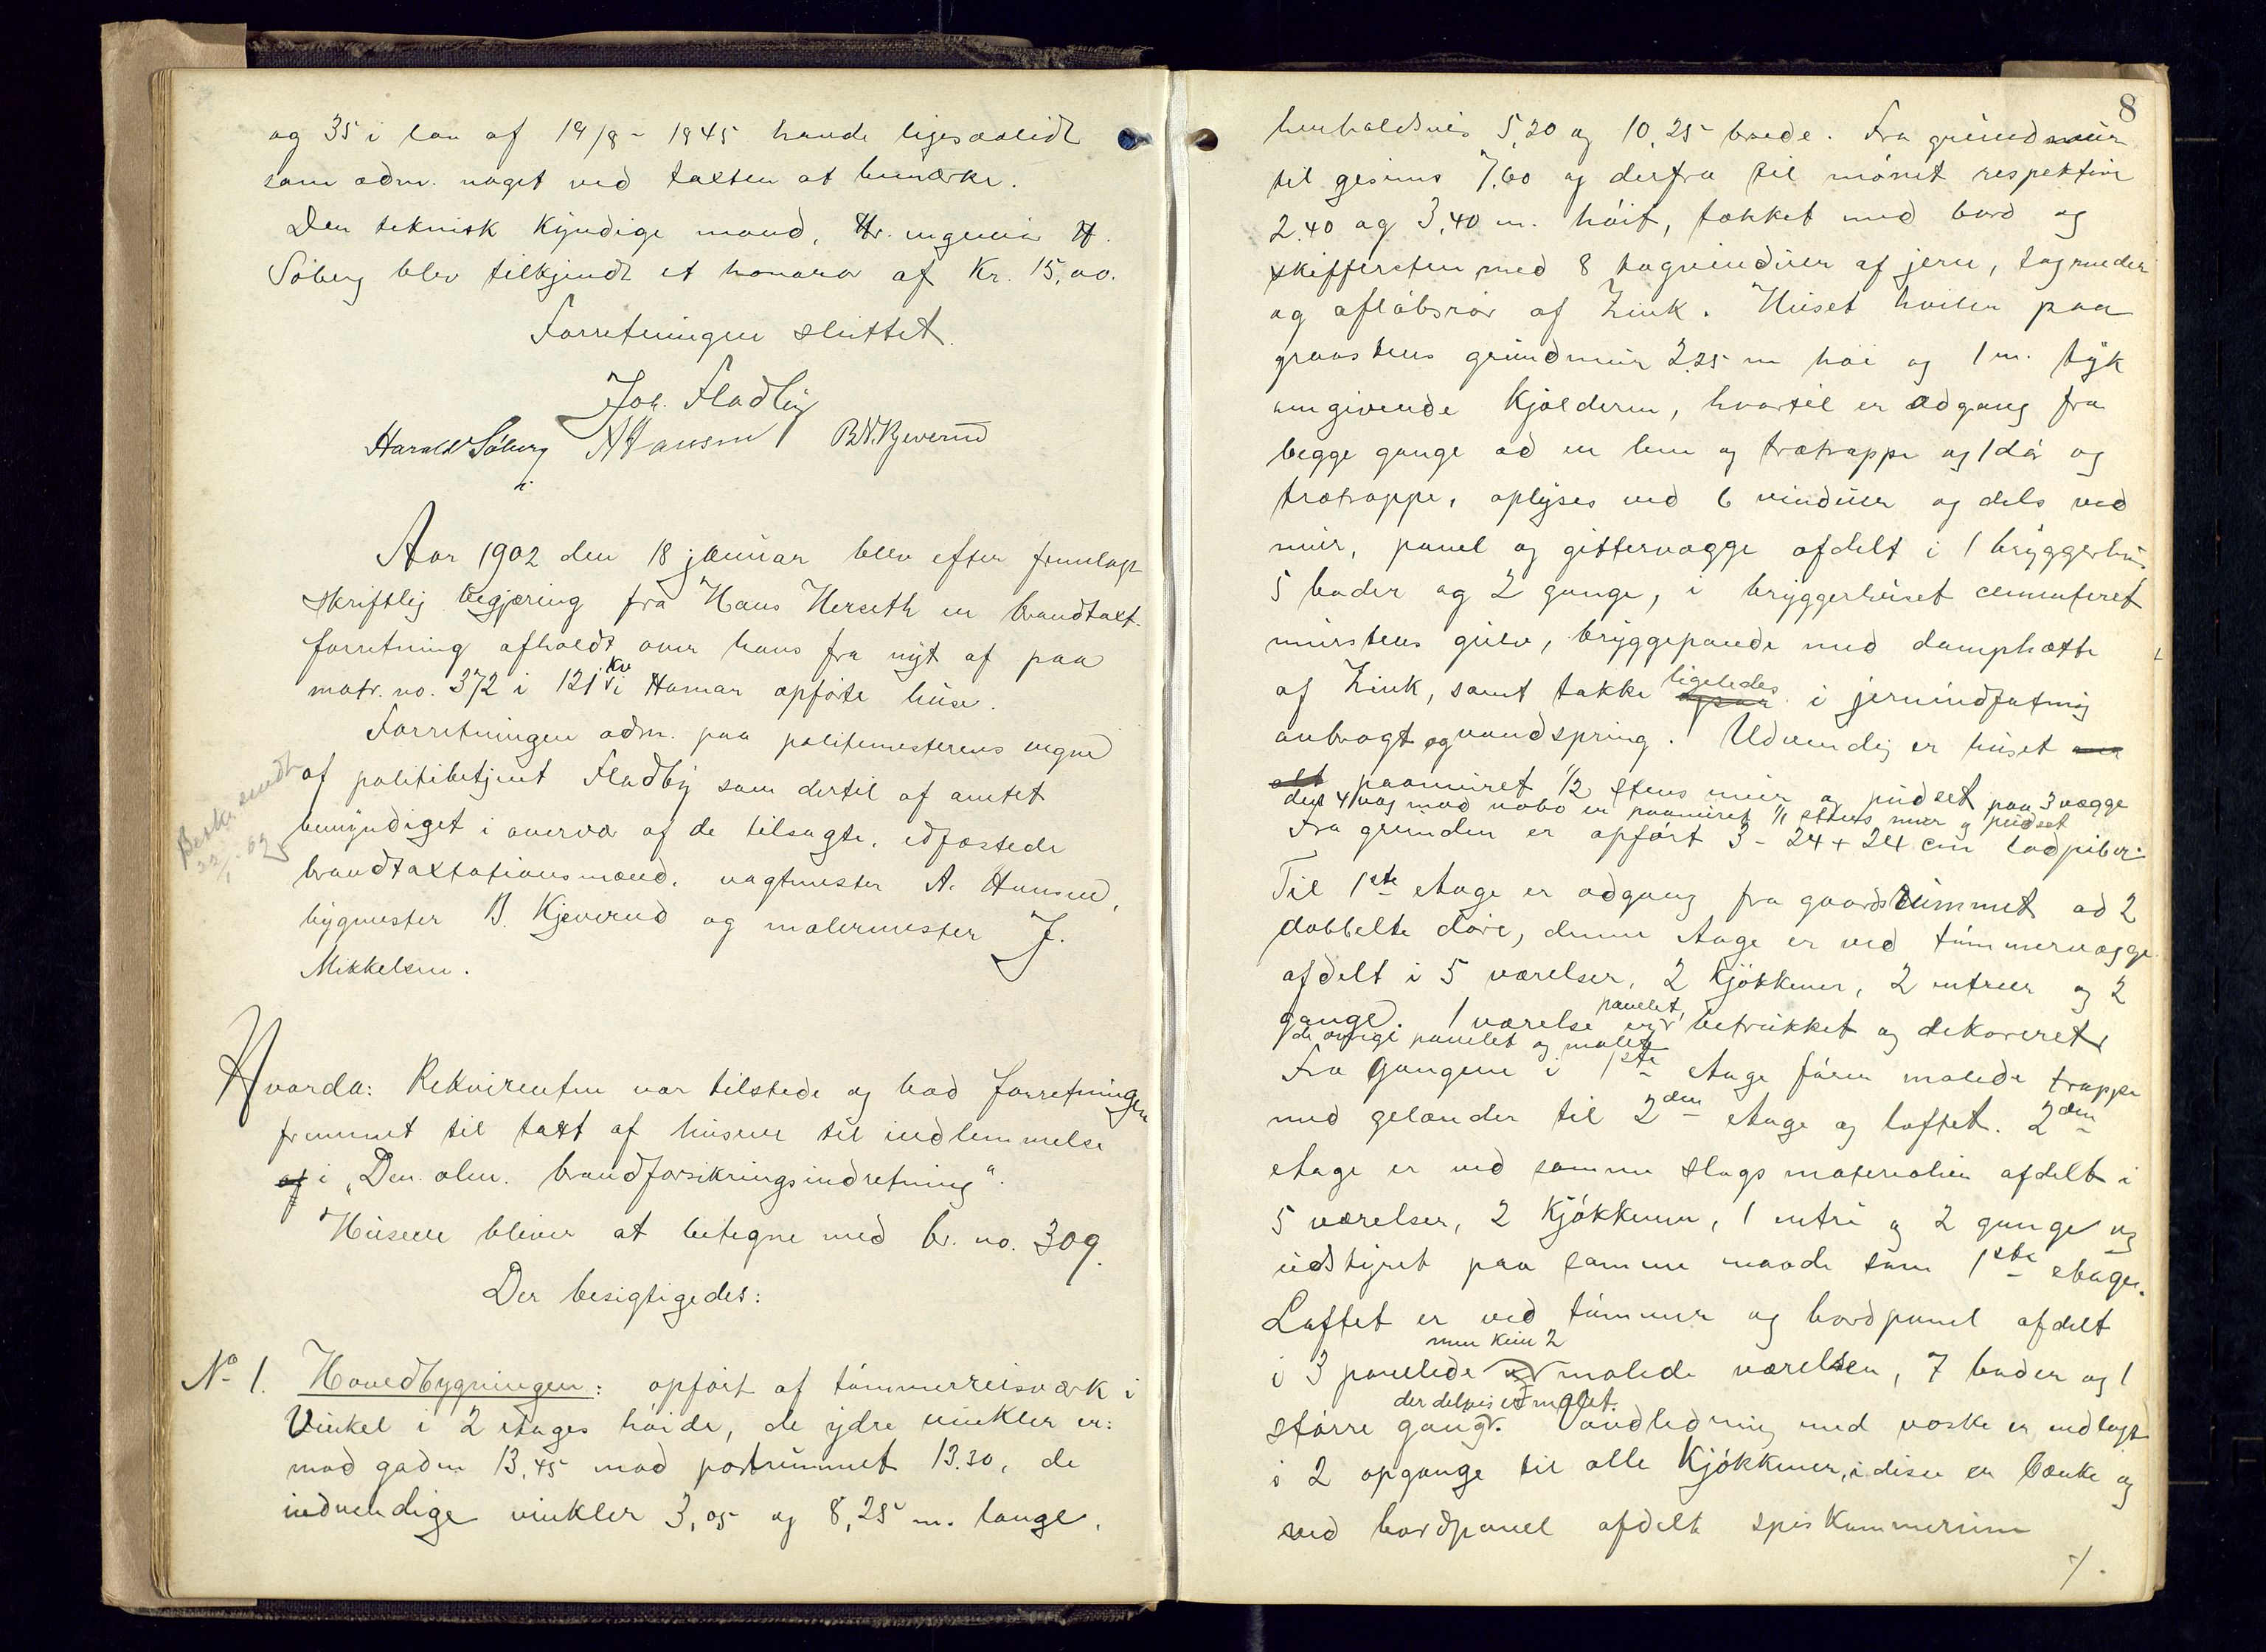 og 35 i lov af 19/8 - 1845 havde ligesaalidt
som adm. noget ved taxten at bemærke.
Den teknisk kyndige mand, Hr. ingeniør H.
Søberg blev tilkjendt et honorar af Kr. 15,00.
Forretningen sluttet.
Joh. Fladby
Harald Søberg A Hansen B. N. Kjeverud
Aar 1902 den 18 januar blev efter fremlagt
skriftlig begjæring fra Hans Herseth en brandtaxt-
forretning afholdt over hans fra nyt af paa
matr. no. 372 i 121 kv i Hamar opførte huse.
Forretningen adm. paa politimesterens vegne
af politibetjent Fladby som dertil af amtet
bemyndiget i overvær af de tilsagte, edfæstede
brandtaxtationsmænd, vagtmester A. Hansen,
bygmester B. Kjeverud og malermester J.
Mikkelsen.
Beskr. sendt
22/1-02
Hvorda: Rekvirenten var tilstede og bad forretningen
fremmet til taxt af husene til indlemmelse
af i „Den alm. brandforsikringsindretning“.
Husene bliver at betegne med br. no. 309.
Der besigtigedes:
No 1. Hovedbygningen: opført af tømmerreisværk i
Vinkel i 2 etages høide, de ydre vinkler er:
mod gaden 13,45 mod portrummet 13.30, de
indvendige vinkler 3,05 og 8,25 m. lange,
8
henholdsvis 5,20 og 10,25 brede. Fra grundmur
til gesims 7,60 og derfra til mønet respektive
2.40 og 3,40 m. høit, tækket med bord og
skiffersten med 8 tagvinduer af jern, tagrender
og afløbsrør af Zink. Huset hviler paa
graastens grundmur 2.25 m høi og 1 m. tyk
omgivende Kjælderen, hvortil er adgang fra
begge gange ad en lem og trætrappe og 1 dør og
trætrappe, oplyses ved 6 vinduer og dels ved
mur, panel og gittervægge afdelt i 1 bryggerhus
5 boder og 2 gange, i bryggerhuset cementeret
murstens gulv, bryggepande med damphætte
af Zink, samt takke ligeledes i jernindfatning
anbragt og vandspring. Udvendig er huset
paamuret 1/2 stens mur og pudset paa 3 vægge
den 4 væg mod nabo er paamuret 1/1 stens mur og pudset
Fra grunden er opført 3 - 24 + 24 cm lodpiber.
Til 1ste etage er adgang fra gaardsrummet ad 2
dobbelte døre, denne etage er ved tømmervægge
afdelt i 5 værelser, 2 Kjøkkener, 2 entreer og 2
gange. 1 værelse er panelet, betrukket og dekoreret,
de øvrige panelet og malet
Fra gangene i 1ste etage fører malede trapper
med gelænder til 2den etage og loftet. 2den
etage er ved samme slags materialier afdelt i
5 værelser, 2 Kjøkkener, 1 entre og 2 gange og
udstyret paa samme maade som 1ste etage.
Loftet er ved tømmer og bordpanel afdelt
i 3 panelede men kun 2 malede værelser, 7 boder og 1
større gang der delvis er malet. Vandledning med vaske er indlagt
i 2 opgange til alle Kjøkkener, i disse er bænke og
ved bordpanel afdelt spiskammerrum
/.